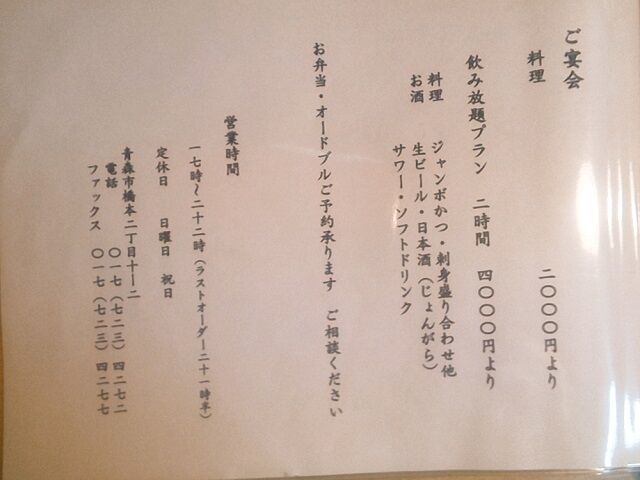 ご宴会
料理　二〇〇〇円より
飲み放題プラン　二時間　四〇〇〇円より
料理　ジャンボかつ・刺身盛り合わせ他
お酒　生ビール・日本酒(じょんがら)
サワー・ソフトドリンク
お弁当・オードブルご予約承ります　ご相談ください
営業時間
一七時～二十二時(ラストオーダー二十一時半)
定休日　日曜日　祝日
青森市橋本二丁目十ー二
電話　〇一七(七二三)四二七二
ファックス　〇一七(七二三)四二七七